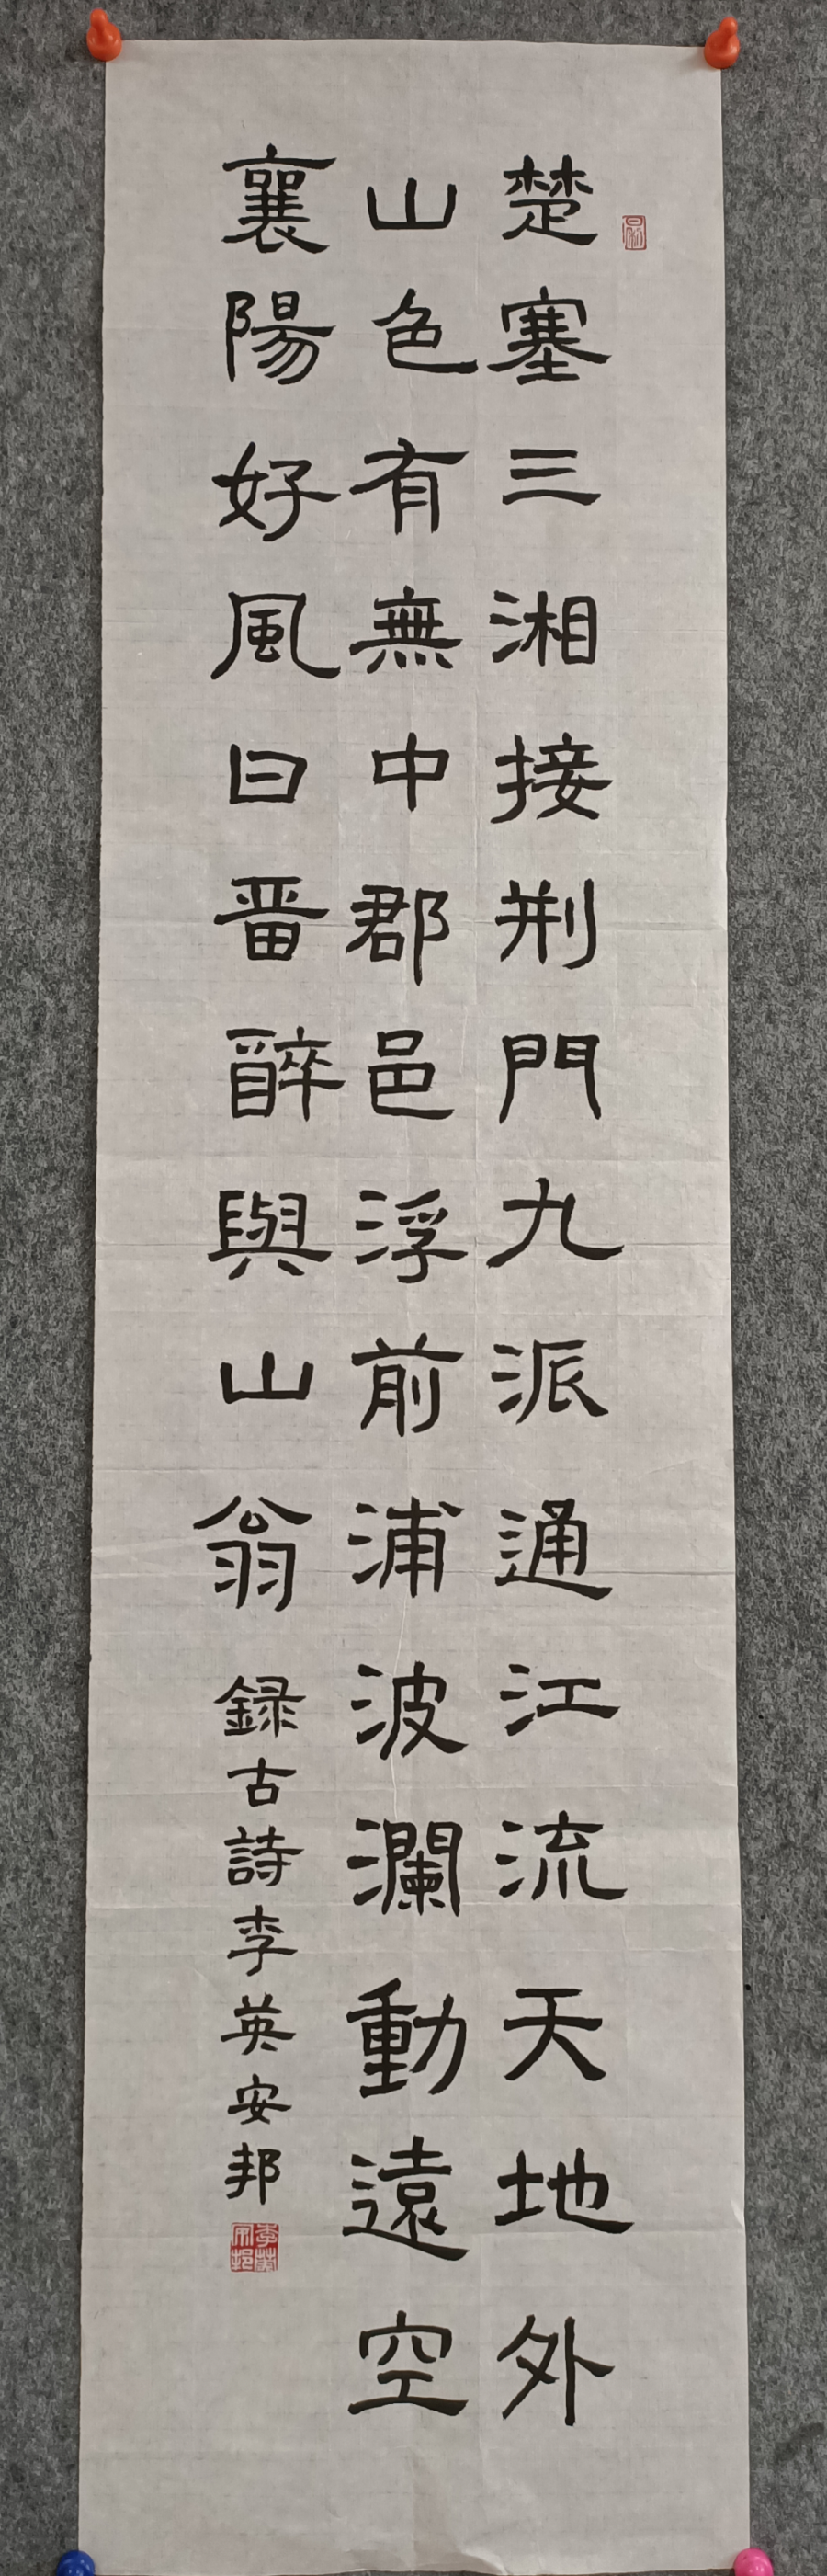 楚塞三湘接荆門九派通江流天地外
山色有無中郡邑浮前浦波瀾動遠空
襄陽好風日畱醉與山翁
録古詩李英安邦